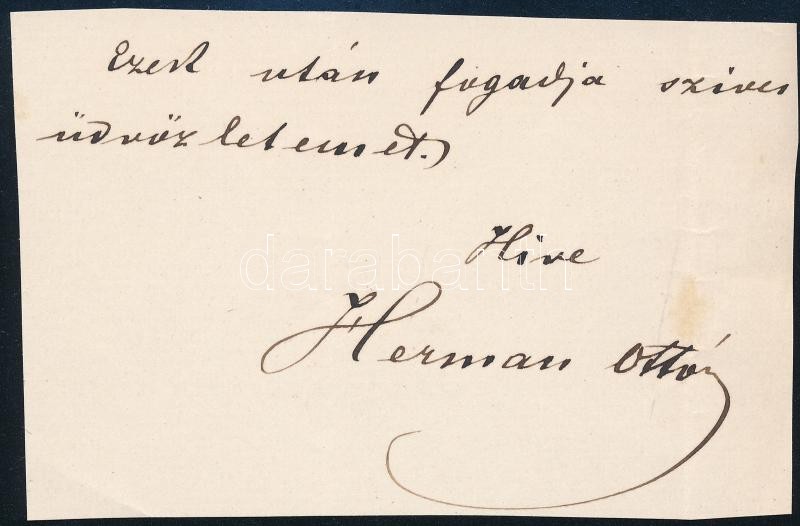 Ezek után fogadja szives
üdvözletemet.
darabanth
Hive
Herman Ottó